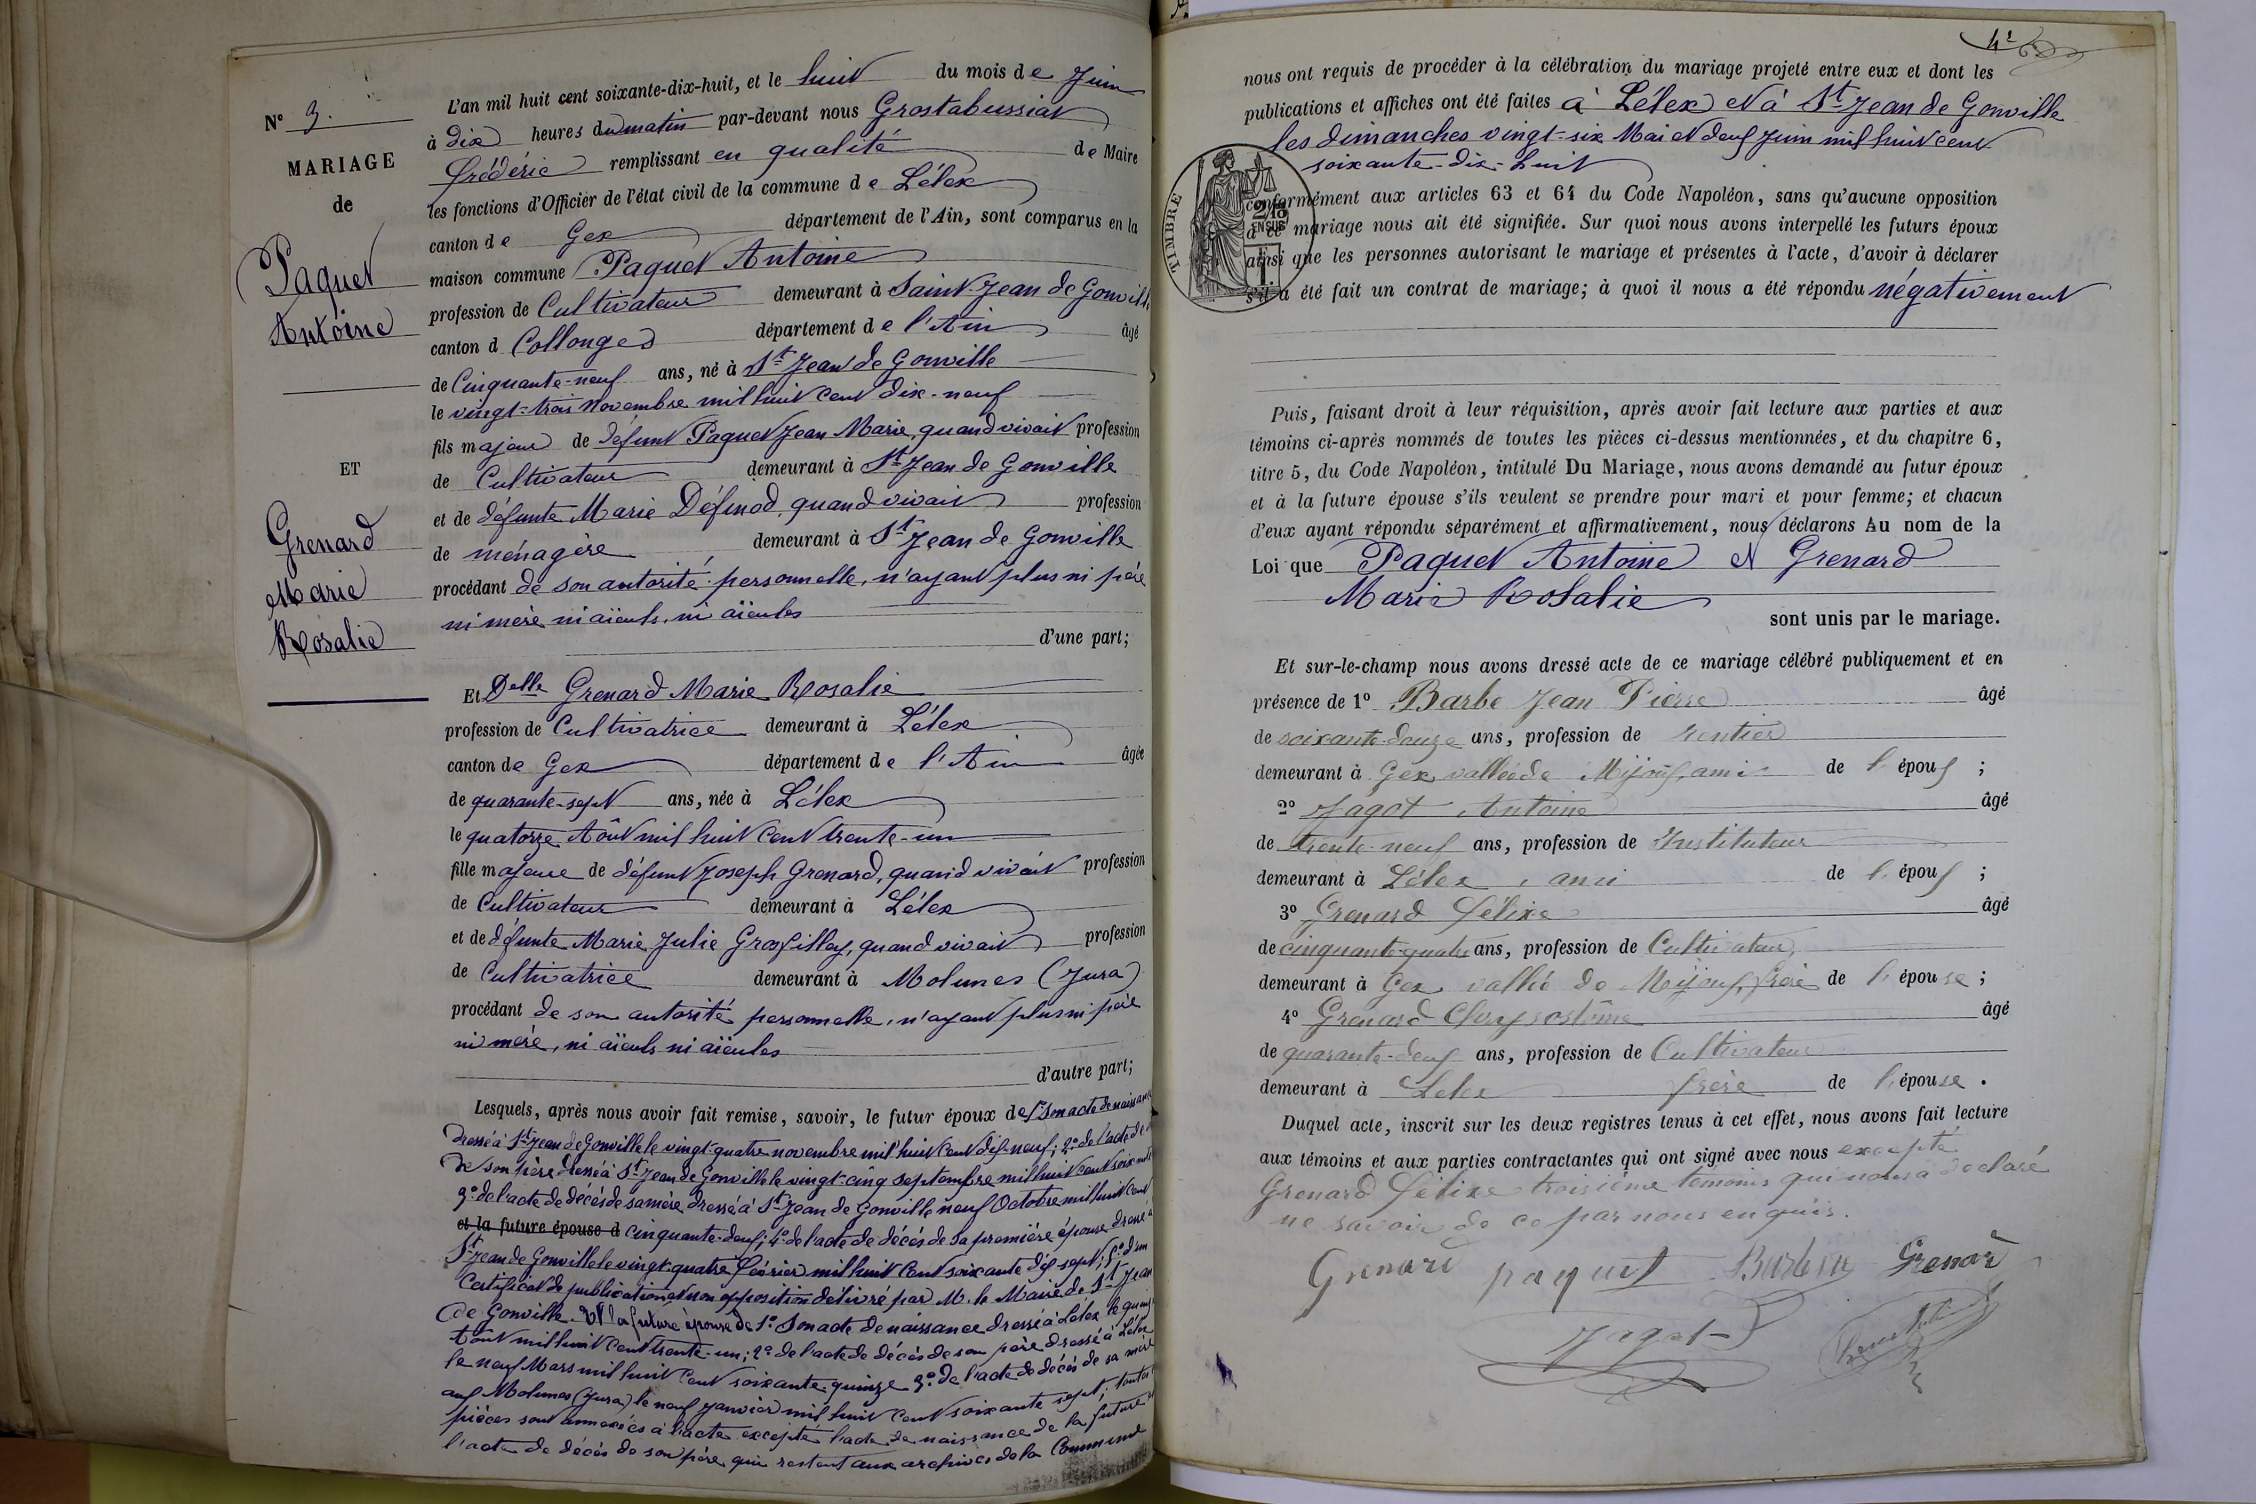 N° 3.
MARIAGE
de
Paquet
Antoine
ET
Grenard
Marie
Rosalie
L'an mil huit cent soixante-dix-huit, et le huit du mois de Juin
à dix heures du matin par-devant nous Grostabussiat
Frédéric remplissant en qualité de Maire
les fonctions d'Officier de l'état civil de la commune de Lélex
canton de Gex département de l'Ain, sont comparus en la
maison commune Paquet Antoine
profession de Cultivateur demeurant à Saint-Jean de Gonville
canton d Collonges département de l'Ain âgé
de Cinquante-neuf ans, né à St Jean de Gonville
le vingt-trois novembre mil huit cent dix-neuf
fils majeur de défunt Paquet Jean Marie, quand vivait profession
de Cultivateur demeurant à St Jean de Gonville
et de défunte Marie Définod, quand vivait profession
de ménagère demeurant à St Jean de Gonville
procédant de son autorité personnelle, n'ayant plus ni père
ni mère ni aïeuls, ni aïeules
d'une part;
Et Delle Grenard Marie Rosalie
profession de Cultivatrice demeurant à Lélex
canton de Gex département de l'Ain âgée
de quarante-sept ans, née à Lélex
le quatorze Août mil huit cent trente-un
fille majeure de défunt Joseph Grenard, quand vivait profession
de Cultivateur demeurant à Lélex
et de défunte Marie Julie Grosfilley, quand vivait profession
de Cultivatrice demeurant à Molunes (Jura)
procédant de son autorité personnelle, n'ayant plus ni père
ni mère, ni aïeuls ni aïeules
d'autre part;
Lesquels, après nous avoir fait remise, savoir, le futur époux de 1° Son acte de naissance
dressé à St Jean de Gonville le vingt-quatre novembre mil huit cent dix-neuf; 2° de l'acte de
de son père dressé à St Jean de Gonville le vingt-cinq septembre mil huit cent soixante
3° de l'acte de décès de sa mère dressé à St Jean de Gonville neuf Octobre mil huit cent
et la future épouse d cinquante-deux; 4° de l'acte de décès de sa première épouse dressé à
St Jean de Gonville le vingt-quatre février mil huit cent soixante dix sept; 5° d'un
Certificat de publication et non opposition délivré par M. le Maire de St Jean
de Gonville. Et la future épouse de 1° Son acte de naissance dressé à Lélex le quinze
Août mil huit cent trente-un; 2° de l'acte de décès de son père dressé à Lélex
le neuf Mars mil huit cent soixante quinze 3° de l'acte de décès de sa mère
aux Molunes (Jura) le neuf janvier mil huit cent soixante sept; toutes
pièces sont annexées à l'acte excepté l'acte de naissance de la future
l'acte de décès de son père qui restent aux archives de la Commune
nous ont requis de procéder à la célébration du mariage projeté entre eux et dont les
publications et affiches ont été faites à Lélex et à St Jean de Gonville
les dimanches vingt-six Mai et deux Juin mil huit cent
soixante-dix-huit
TIMBRE
conformément aux articles 63 et 64 du Code Napoléon, sans qu'aucune opposition
à ce mariage nous ait été signifiée. Sur quoi nous avons interpellé les futurs époux
ainsi que les personnes autorisant le mariage et présentes à l'acte, d'avoir à déclarer
s'il a été fait un contrat de mariage; à quoi il nous a été répondu négativement
Puis, faisant droit à leur réquisition, après avoir fait lecture aux parties et aux
témoins ci-après nommés de toutes les pièces ci-dessus mentionnées, et du chapitre 6,
titre 5, du Code Napoléon, intitulé Du Mariage, nous avons demandé au futur époux
et à la future épouse s'ils veulent se prendre pour mari et pour femme; et chacun
d'eux ayant répondu séparément et affirmativement, nous déclarons Au nom de la
Loi que Paquet Antoine et Grenard
Marie Rosalie
sont unis par le mariage.
Et sur-le-champ nous avons dressé acte de ce mariage célébré publiquement et en
présence de 1° Barbe Jean Pierre âgé
de soixante-douze ans, profession de rentier
demeurant à Gex, vallée de Mijoux, ami de l'époux ;
2° Jagot Antoine âgé
de trente-neuf ans, profession de Instituteur
demeurant à Lélex, ami de l'époux ;
3° Grenard Félixe âgé
de cinquante-quatre ans, profession de Cultivateur,
demeurant à Gex vallée de Mijoux, frère de l'épouse ;
4° Grenard Chrysostôme âgé
de quarante-deux ans, profession de Cultivateur
demeurant à Lelex frère de l'épouse.
Duquel acte, inscrit sur les deux registres tenus à cet effet, nous avons fait lecture
aux témoins et aux parties contractantes qui ont signé avec nous excepté
Grenard Félixe troisième témoins qui nous a declaré
ne savoir de ce par nous enquis.
Grenard paquet Grenard
Jagot